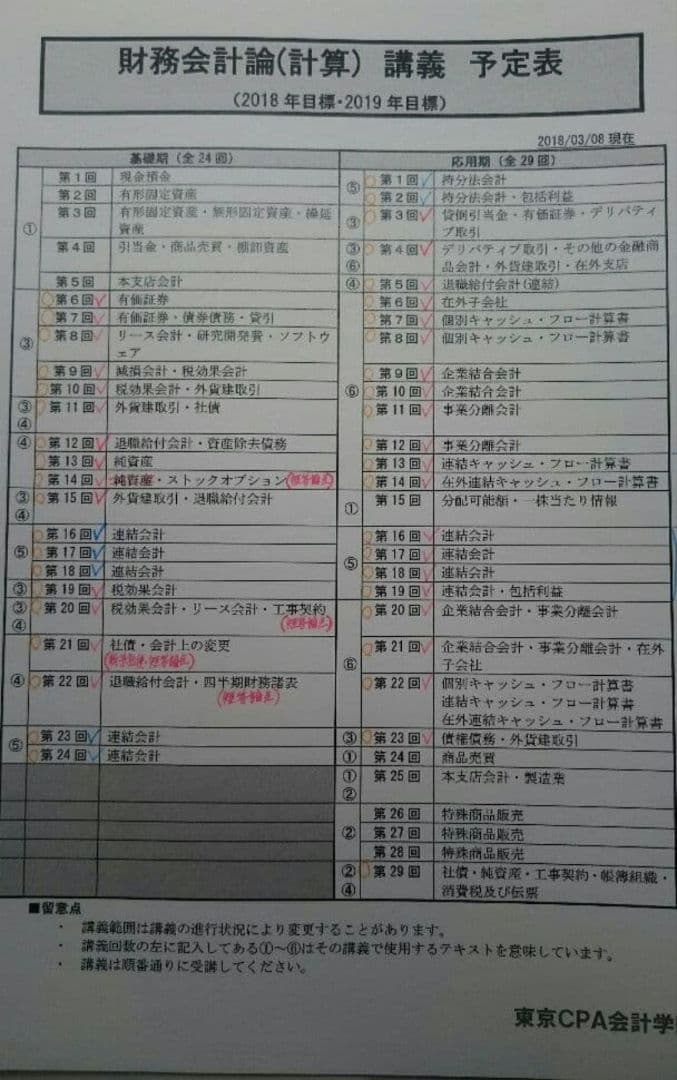 財務会計論(計算) 講義 予定表
(2018年目標・2019年目標)
2018/03/08 現在
基礎期(全24回)
① 第1回 現金預金
第2回 有形固定資産
第3回 有形固定資産・無形固定資産・繰延
資産
第4回 引当金・商品売買・棚卸資産
第5回 本支店会計
③ 第6回 有価証券
第7回 有価証券・債券債務・貸引
第8回 リース会計・研究開発費・ソフトウ
ェア
第9回 減損会計・税効果会計
第10回 税効果会計・外貨建取引
③ 第11回 外貨建取引・社債
④
④ 第12回 退職給付会計・資産除去債務
第13回 純資産
第14回 純資産・ストックオプション(短答論点)
③ 第15回 外貨建取引・退職給付会計
④
⑤ 第16回 連結会計
第17回 連結会計
第18回 連結会計
③ 第19回 税効果会計
③ 第20回 税効果会計・リース会計・工事契約
④ (短答論点)
④ 第21回 社債・会計上の変更
第22回 退職給付会計・四半期財務諸表
(短答論点)
⑤ 第23回 連結会計
第24回 連結会計
応用期(全29回)
⑤ 第1回 持分法会計
第2回 持分法会計・包括利益
③ 第3回 貸倒引当金・有価証券・デリバティ
ブ取引
③ 第4回 デリバティブ取引・その他の金融商
⑥ 品会計・外貨建取引・在外支店
④ 第5回 退職給付会計(連結)
⑥ 第6回 在外子会社
第7回 個別キャッシュ・フロー計算書
第8回 個別キャッシュ・フロー計算書
第9回 企業結合会計
第10回 企業結合会計
第11回 事業分離会計
第12回 事業分離会計
第13回 連結キャッシュ・フロー計算書
第14回 在外連結キャッシュ・フロー計算書
① 第15回 分配可能額・一株当たり情報
⑤ 第16回 連結会計
第17回 連結会計
第18回 連結会計
第19回 連結会計・包括利益
⑥ 第20回 企業結合会計・事業分離会計
第21回 企業結合会計・事業分離会計・在外
子会社
第22回 個別キャッシュ・フロー計算書
連結キャッシュ・フロー計算書
在外連結キャッシュ・フロー計算書
③ 第23回 債権債務・外貨建取引
① 第24回 商品売買
① 第25回 本支店会計・製造業
②
② 第26回 特殊商品販売
第27回 特殊商品販売
第28回 特殊商品販売
② 第29回 社債・純資産・工事契約・帳簿組織・
④ 消費税及び伝票
■留意点
・ 講義範囲は講義の進行状況により変更することがあります。
・ 講義回数の左に記入してある①～⑥はその講義で使用するテキストを意味しています。
・ 講義は順番通りに受講してください。
東京CPA会計学